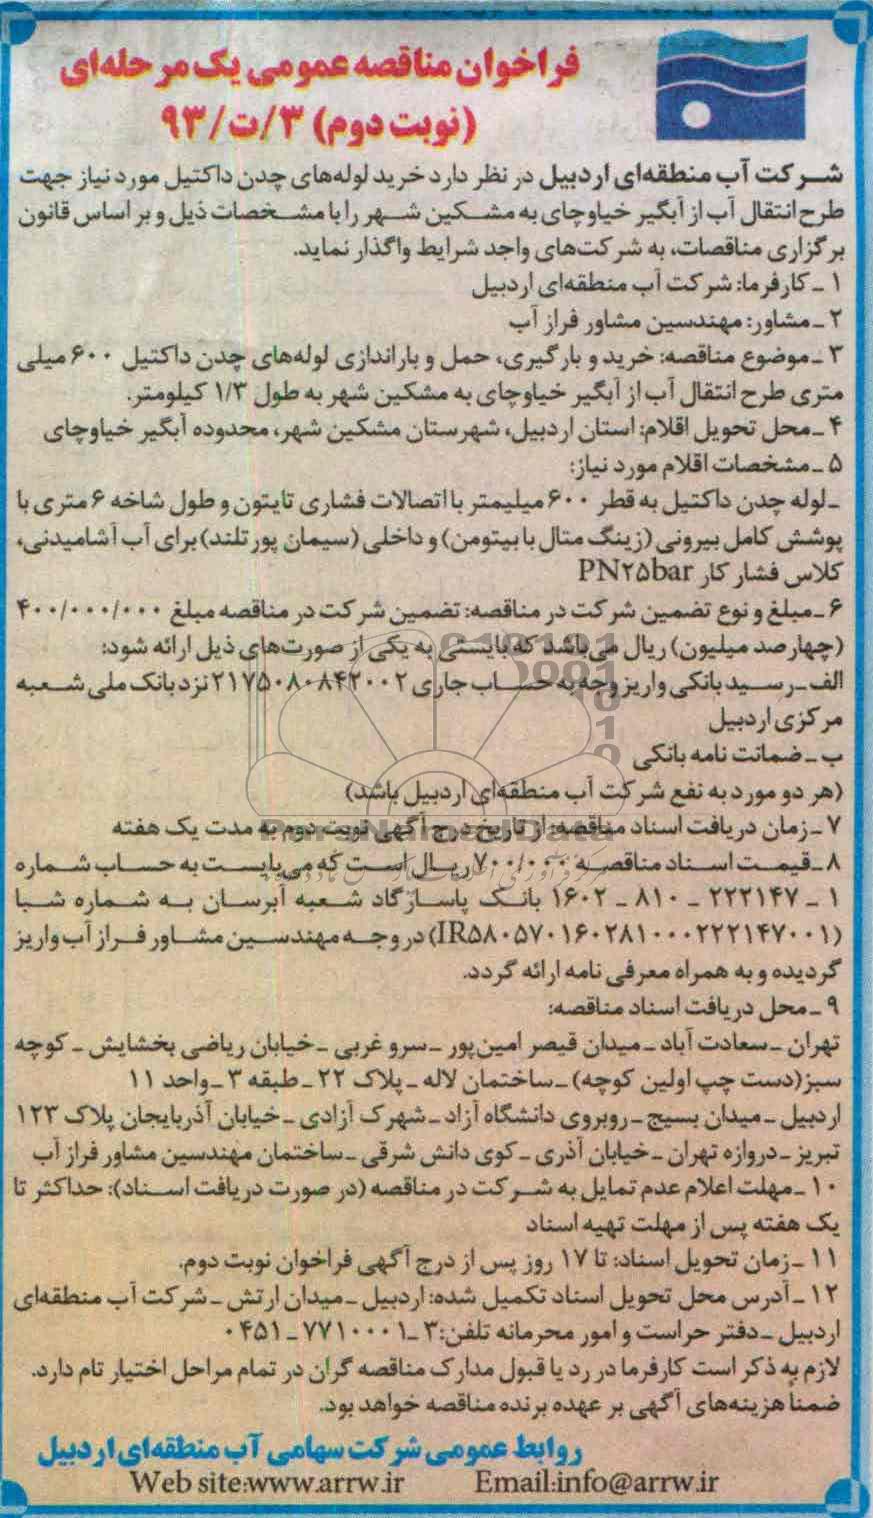 فراخوان مناقصه عمومی یک مرحله‌ای
(نوبت دوم) ۳/ت/۹۳
شرکت آب منطقه‌ای اردبیل در نظر دارد خرید لوله‌های چدن داکتیل مورد نیاز جهت
طرح انتقال آب از آبگیر خیاوچای به مشکین شهر را با مشخصات ذیل و بر اساس قانون
برگزاری مناقصات، به شرکت‌های واجد شرایط واگذار نماید.
۱ ـ کارفرما: شرکت آب منطقه‌ای اردبیل
۲ ـ مشاور: مهندسین مشاور فراز آب
۳ ـ موضوع مناقصه: خرید و بارگیری، حمل و باراندازی لوله‌های چدن داکتیل ۶۰۰ میلی
متری طرح انتقال آب از آبگیر خیاوچای به مشکین شهر به طول ۱/۳ کیلومتر.
۴ ـ محل تحویل اقلام: استان اردبیل، شهرستان مشکین شهر، محدوده آبگیر خیاوچای
۵ ـ مشخصات اقلام مورد نیاز:
ـ لوله چدن داکتیل به قطر ۶۰۰ میلیمتر با اتصالات فشاری تایتون و طول شاخه ۶ متری با
پوشش کامل بیرونی (زینگ متال با بیتومن) و داخلی (سیمان پورتلند) برای آب آشامیدنی،
کلاس فشار کار PN۲۵bar
۶ ـ مبلغ و نوع تضمین شرکت در مناقصه: تضمین شرکت در مناقصه مبلغ ۴۰۰/۰۰۰/۰۰۰
(چهارصد میلیون) ریال می‌باشد که بایستی به یکی از صورت‌های ذیل ارائه شود:
الف ـ رسید بانکی واریز وجه به حساب جاری ۲۱۷۵۰۸۰۸۴۲۰۰۲ نزد بانک ملی شعبه
مرکزی اردبیل
ب ـ ضمانت نامه بانکی
(هر دو مورد به نفع شرکت آب منطقه‌ای اردبیل باشد)
۷ ـ زمان دریافت اسناد مناقصه: از تاریخ درج آگهی نوبت دوم به مدت یک هفته
۸ ـ قیمت اسناد مناقصه ۷۰۰/۰۰۰ ریال است که می‌بایست به حساب شماره
۱ ـ ۲۲۲۱۴۷ ـ ۸۱۰ ـ ۱۶۰۲ بانک پاسارگاد شعبه آبرسان به شماره شبا
(IR۵۸۰۵۷۰۱۶۰۲۸۱۰۰۰۲۲۲۱۴۷۰۰۱) در وجه مهندسین مشاور فراز آب واریز
گردیده و به همراه معرفی نامه ارائه گردد.
۹ ـ محل دریافت اسناد مناقصه:
تهران ـ سعادت آباد ـ میدان قیصر امین‌پور ـ سرو غربی ـ خیابان ریاضی بخشایش ـ کوچه
سبز (دست چپ اولین کوچه) ـ ساختمان لاله ـ پلاک ۲۲ ـ طبقه ۳ ـ واحد ۱۱
اردبیل ـ میدان بسیج ـ روبروی دانشگاه آزاد ـ شهرک آزادی ـ خیابان آذربایجان پلاک ۱۲۳
تبریز ـ دروازه تهران ـ خیابان آذری ـ کوی دانش شرقی ـ ساختمان مهندسین مشاور فراز آب
۱۰ ـ مهلت اعلام عدم تمایل به شرکت در مناقصه (در صورت دریافت اسناد): حداکثر تا
یک هفته پس از مهلت تهیه اسناد
۱۱ ـ زمان تحویل اسناد: تا ۱۷ روز پس از درج آگهی فراخوان نوبت دوم.
۱۲ ـ آدرس محل تحویل اسناد تکمیل شده: اردبیل ـ میدان ارتش ـ شرکت آب منطقه‌ای
اردبیل ـ دفتر حراست و امور محرمانه تلفن: ۳ ـ ۷۷۱۰۰۰۱ ـ ۰۴۵۱
لازم به ذکر است کارفرما در رد یا قبول مدارک مناقصه گران در تمام مراحل اختیار تام دارد.
ضمناً هزینه‌های آگهی بر عهده برنده مناقصه خواهد بود.
روابط عمومی شرکت سهامی آب منطقه‌ای اردبیل
Web site:www.arrw.ir Email:info@arrw.ir